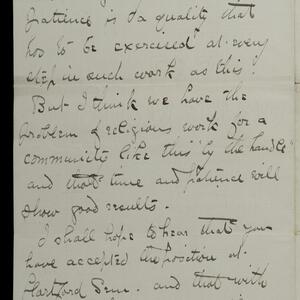 patience is a quality that
has to be exercised at every
step in such work as this.
But I think we have the
problem of religious work for a
community like this "by the handle"
and that time and patience will
show good results.
I shall hope to hear that you
have accepted the position at
Hartford Sem. and that with